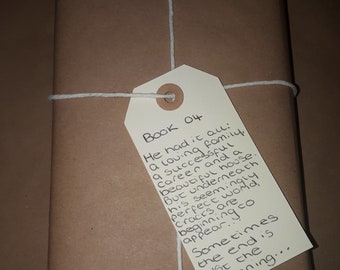 Book 04
He had it all:
a loving family,
a successful
career and a
beautiful house.
But underneath
his seemingly
perfect world,
cracks are
beginning to
appear...
Sometimes
the end is
just the
beginning...